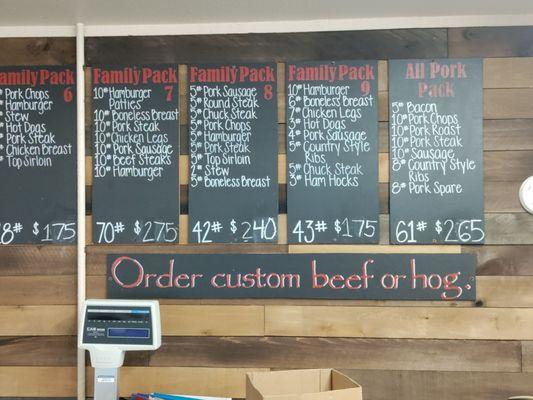 Family Pack
6
Pork Chops
Hamburger
Stew
Hot Dogs
Pork Steak
Chicken Breast
Top Sirloin
8# $175
Family Pack
7
10# Hamburger
Patties
10# Boneless Breast
10# Pork Steak
10# Chicken Legs
10# Pork Sausage
10# Beef Steaks
10# Hamburger
70# $275
Family Pack
8
5# Pork Sausage
5# Round Steak
5# Chuck Steak
5# Pork Chops
5# Hamburger
5# Pork Steak
5# Top Sirloin
2# Stew
5# Boneless Breast
42# $240
Family Pack
9
10# Hamburger
6# Boneless Breast
Chicken Legs
Hot Dogs
4# Pork Sausage
5# Country Style
Ribs
5# Chuck Steak
3# Ham Hocks
43# $175
All Pork
Pack
5# Bacon
10# Pork Chops
10# Pork Roast
10# Pork Steak
10# Sausage
8# Country Style
Ribs
8# Pork Spare
61# $265
Order custom beef or hog.
CAS